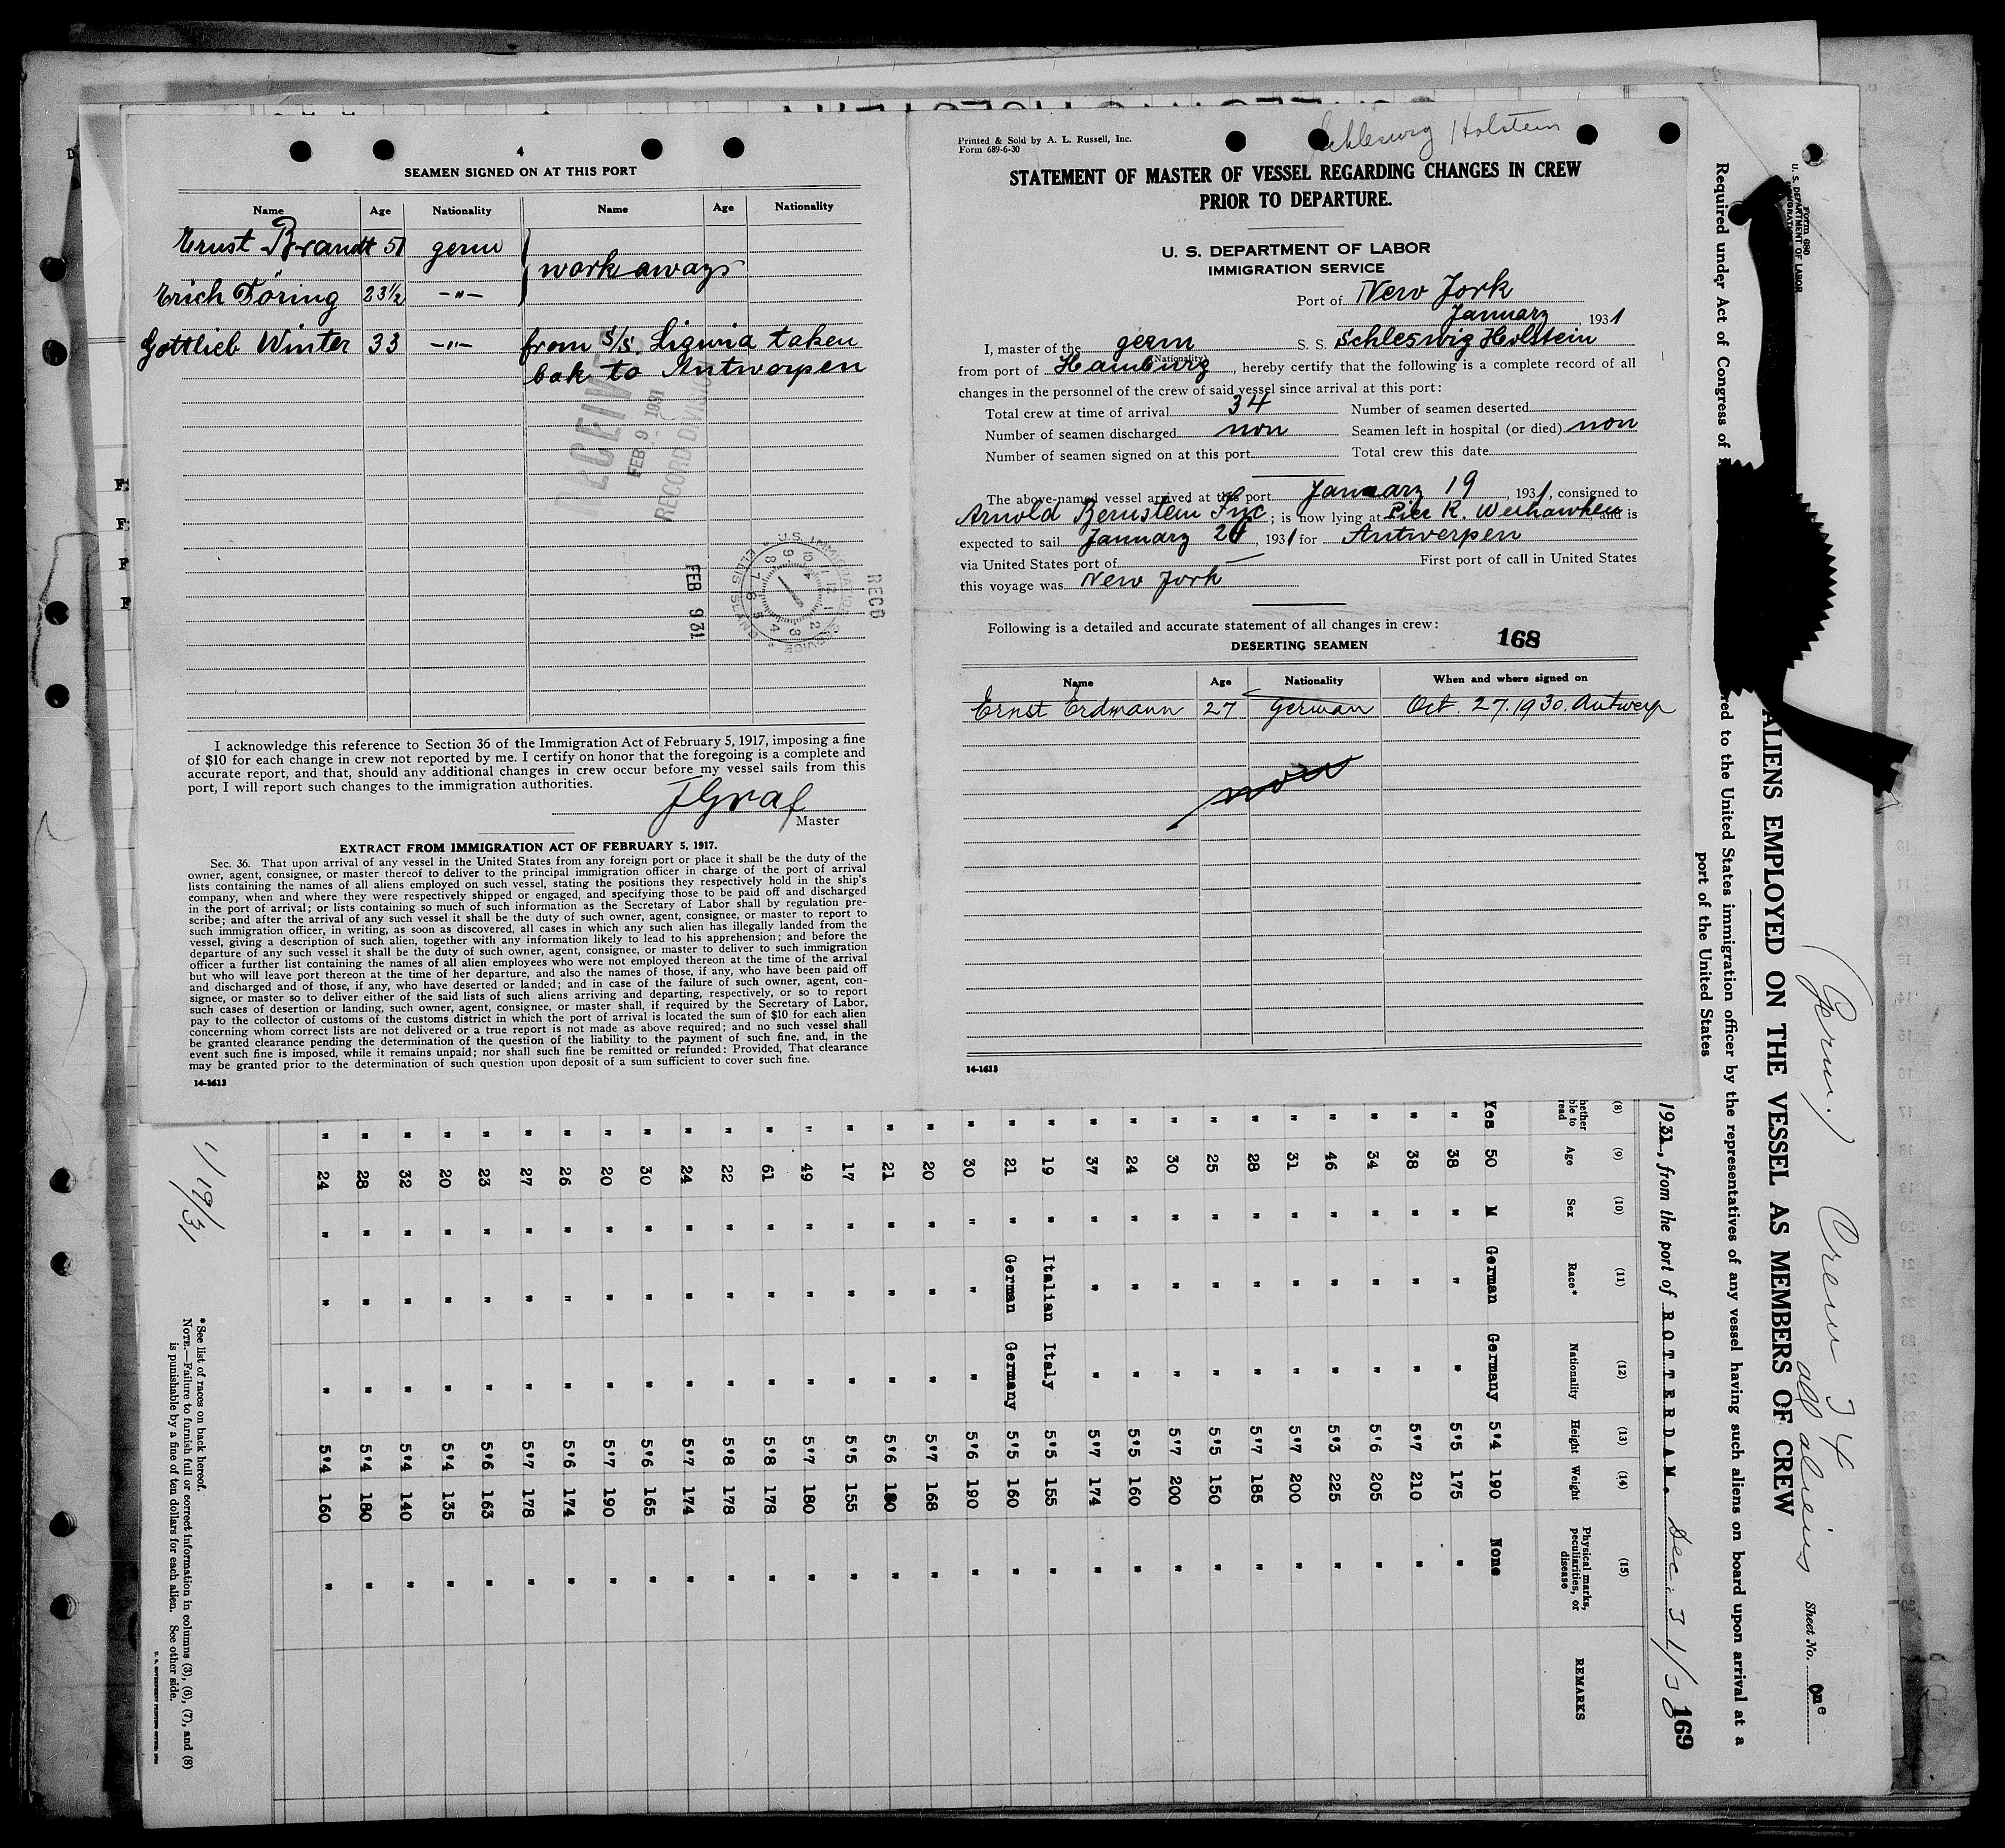 4
SEAMEN SIGNED ON AT THIS PORT
Name Age Nationality Name Age Nationality
Ernst Brandt 51 germ
work aways
Erich Töring 23½ -"-
Gottlieb Winter 33 -"- from s/s. Liguria taken
bak to Antwerpen
RECEIVED
FEB 9 1931
RECORD DIVISION
U.S. IMMIGRATION SERVICE
ELLIS ISLAND
RECD
FEB 9 31
I acknowledge this reference to Section 36 of the Immigration Act of February 5, 1917, imposing a fine
of $10 for each change in crew not reported by me. I certify on honor that the foregoing is a complete and
accurate report, and that, should any additional changes in crew occur before my vessel sails from this
port, I will report such changes to the immigration authorities.
J Graf
Master
EXTRACT FROM IMMIGRATION ACT OF FEBRUARY 5, 1917.
Sec. 36. That upon arrival of any vessel in the United States from any foreign port or place it shall be the duty of the
owner, agent, consignee, or master thereof to deliver to the principal immigration officer in charge of the port of arrival
lists containing the names of all aliens employed on such vessel, stating the positions they respectively hold in the ship's
company, when and where they were respectively shipped or engaged, and specifying those to be paid off and discharged
in the port of arrival; or lists containing so much of such information as the Secretary of Labor shall by regulation pre-
scribe; and after the arrival of any such vessel it shall be the duty of such owner, agent, consignee, or master to report to
such immigration officer, in writing, as soon as discovered, all cases in which any such alien has illegally landed from the
vessel, giving a description of such alien, together with any information likely to lead to his apprehension; and before the
departure of any such vessel it shall be the duty of such owner, agent, consignee, or master to deliver to such immigration
officer a further list containing the names of all alien employees who were not employed thereon at the time of the arrival
but who will leave port thereon at the time of her departure, and also the names of those, if any, who have been paid off
and discharged and of those, if any, who have deserted or landed; and in case of the failure of such owner, agent, con-
signee, or master so to deliver either of the said lists of such aliens arriving and departing, respectively, or so to report
such cases of desertion or landing, such owner, agent, consignee, or master shall, if required by the Secretary of Labor,
pay to the collector of customs of the customs district in which the port of arrival is located the sum of $10 for each alien
concerning whom correct lists are not delivered or a true report is not made as above required; and no such vessel shall
be granted clearance pending the determination of the question of the liability to the payment of such fine, and, in the
event such fine is imposed, while it remains unpaid; nor shall such fine be remitted or refunded: Provided, That clearance
may be granted prior to the determination of such question upon deposit of a sum sufficient to cover such fine.
14-1613
Printed & Sold by A. L. Russell, Inc.
Form 689-6-30
Schleswig Holstein
STATEMENT OF MASTER OF VESSEL REGARDING CHANGES IN CREW
PRIOR TO DEPARTURE.
U. S. DEPARTMENT OF LABOR
IMMIGRATION SERVICE
Port of New York
January 1931
I, master of the germ S. S. Schleswig Holstein
(Nationality)
from port of Hamburg, hereby certify that the following is a complete record of all
changes in the personnel of the crew of said vessel since arrival at this port:
Total crew at time of arrival 34 Number of seamen deserted
Number of seamen discharged non Seamen left in hospital (or died) non
Number of seamen signed on at this port Total crew this date
The above-named vessel arrived at this port January 19, 1931, consigned to
Arnold Bernstein Inc; is now lying at Pier K. Weehawken, and is
expected to sail January 20, 1931 for Antwerpen
via United States port of — First port of call in United States
this voyage was New York
Following is a detailed and accurate statement of all changes in crew:
DESERTING SEAMEN 168
Name Age Nationality When and where signed on
Ernst Erdmann 27 german Oct. 27. 1930. Antwerp
non
14-1613
Form 680
U. S. DEPARTMENT OF LABOR
IMMIGRATION
(Germ.) Crew 34
all aliens
Sheet No. One
ALIENS EMPLOYED ON THE VESSEL AS MEMBERS OF CREW
Required under Act of Congress of
red to the United States immigration officer by the representatives of any vessel having such aliens on board upon arrival at a
port of the United States
1931, from the port of ROTTERDAM. Dec. 31/30
169
(8) (9) (10) (11) (12) (13) (14) (15)
hether ble to read Age Sex Race* Nationality Height Weight Physical marks, peculiarities, or disease REMARKS
Yes 50 M German Germany 5'4 190 None
" 38 " " " 5'5 175 "
" 38 " " " 5'7 210 "
" 34 " " " 5'6 205 "
" 46 " " " 5'3 225 "
" 31 " " " 5'7 200 "
" 28 " " " 5'7 185 "
" 25 " " " 5'5 150 "
" 30 " " " 5'7 200 "
" 24 " " " 5'5 160 "
" 37 " " " 5'7 174 "
" 19 " Italian Italy 5'5 155 "
" 21 " German Germany 5'5 160 "
" 30 " " " 5'6 190 "
" 20 " " " 5'7 168 "
" 21 " " " 5'6 180 "
" 17 " " " 5'5 155 "
" 49 " " " 5'7 180 "
" 61 " " " 5'8 178 "
" 22 " " " 5'8 178 "
" 24 " " " 5'7 174 "
" 30 " " " 5'6 165 "
" 20 " " " 5'7 190 "
" 26 " " " 5'6 174 "
" 27 " " " 5'7 178 "
" 23 " " " 5'6 163 "
" 20 " " " 5'4 135 "
" 32 " " " 5'4 140 "
" 28 " " " 5'4 180 "
" 24 " " " 5'4 160 "
1/19/31
* See list of races on back hereof.
NOTE.—Failure to furnish full or correct information in columns (3), (6), (7), and (8)
is punishable by a fine of ten dollars for each alien. See other side.